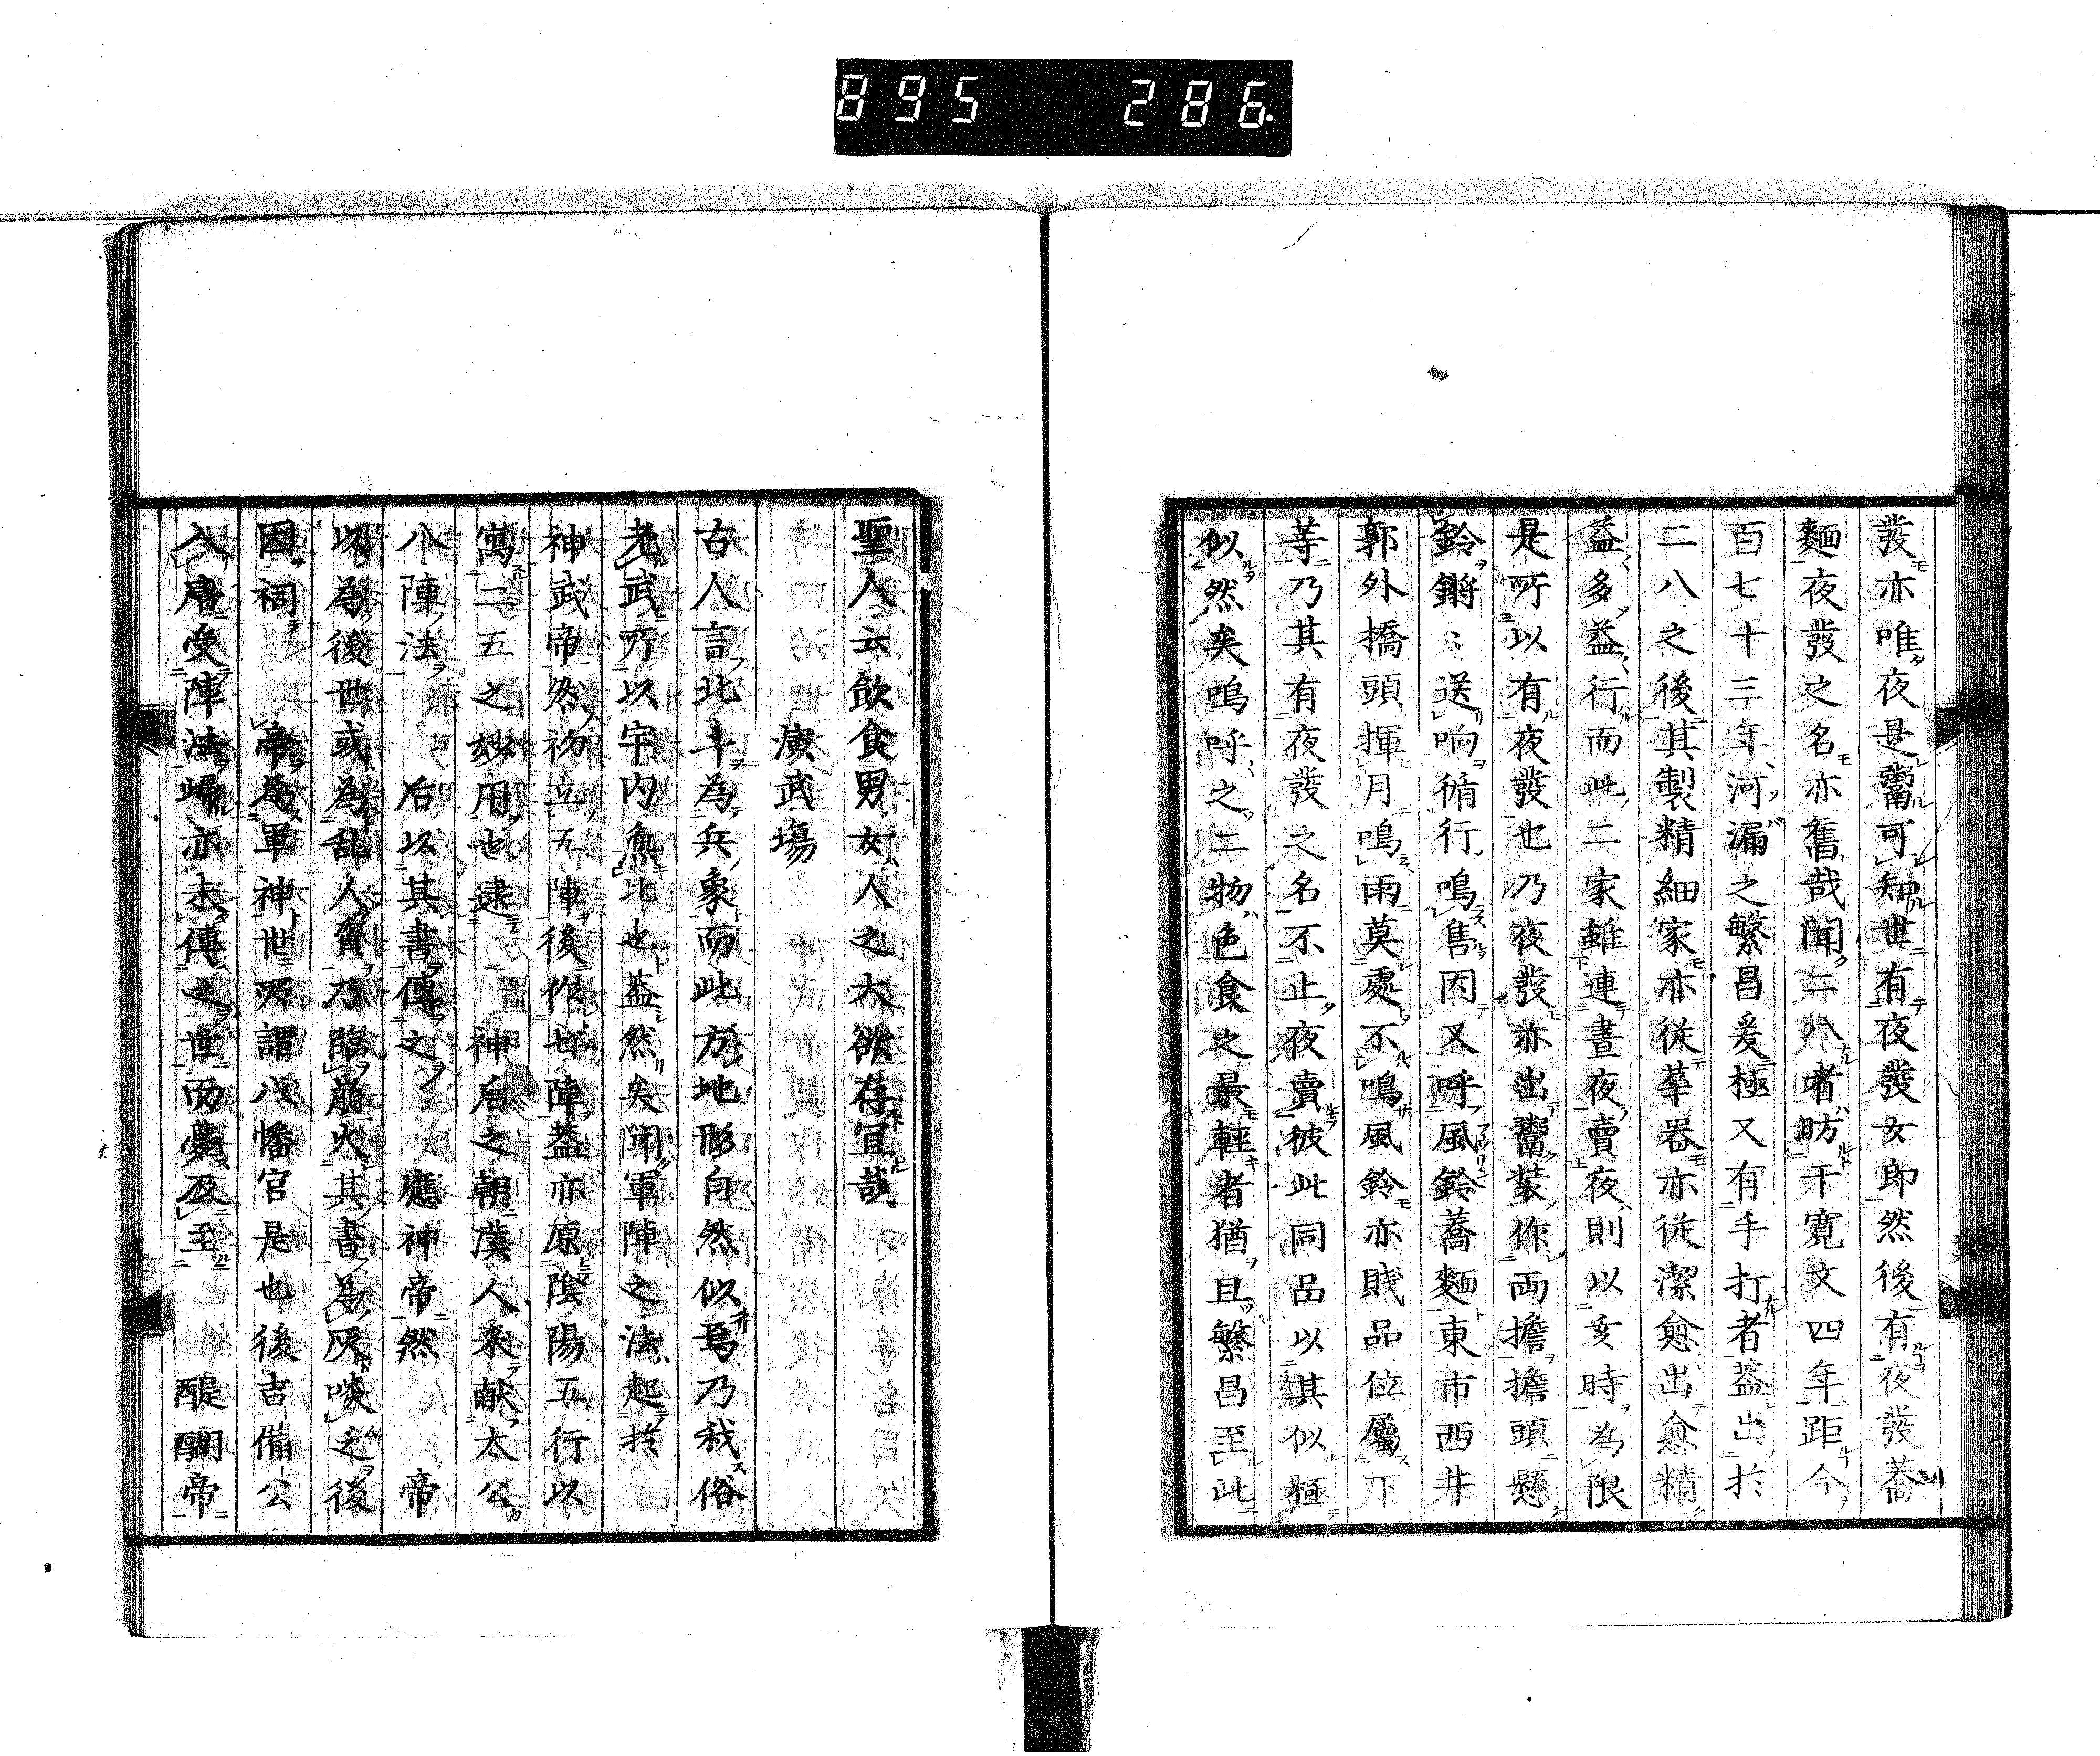 895 286
發亦唯夜是鬻可知世有夜發女即然後有夜發蕎
麵夜發之名亦舊哉聞二八者昉于寬文四年距今
百七十三年河漏之繁昌爰極又有手打者蓋出於
二八之後其製精細家亦従華器亦従潔愈出愈精
益多益行而此二家雖連晝夜賣夜則以亥時為限
是所以有夜發也乃夜發亦出鬻裝作両擔擔頭懸
鈴鏘〻送响循行鳴售因又呼風鈴蕎麵東市西井
郭外橋頭揮月鳴雨莫處不鳴風鈴亦賎品位屬下
等乃其有夜發之名不止夜賣彼此同品以其似極
似然矣嗚呼之二物色食之最輕者猶且繁昌至此
聖人云飲食男女人之大欲存宜哉
演武塲
古人言北斗為兵象而此方地形自然似焉乃我俗
老武所以宇内無比也蓋然矣聞軍陣之法起於
神武帝然初立五陣後作七陣蓋亦原陰陽五行以
寓二五之妙用也逮神后之朝漢人来献太公
八陣法后以其書傳之應神帝然帝
以為後世或為乱人資乃臨崩火其書為灰啖之後
因祠帝為軍神世所謂八幡宮是也後吉備公
入唐受陣法帰亦未傳之世而薨及至醍醐帝